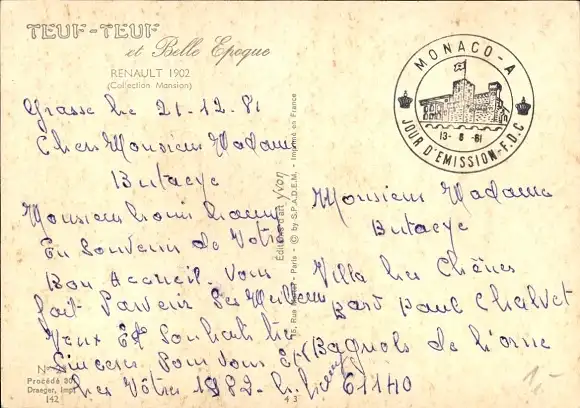 TEUF-TEUF
et Belle Epoque
RENAULT 1902
(Collection Mansion)
Grasse Le 21.12.81
Cher Monsieur Madame
Butaeye
Monsieur Louis
En Souvenir de Votre
Bon Accueil. Vous
fait Parvenir Ses Meilleurs
Veux Et Souhaits très
Sincères Pour Vous Et
Les Vôtres 1982
N°
Procédé 301
Draeger, Impr
142
43
Editions d'art yvon
15, Rue - Paris - © by S.P.A.D.E.M. - Imprimé en France
MONACO-A
13-8-81
JOUR D'EMISSION-F.D.C
Monsieur Madame
Butaeye
Villa Les Chênes
Bard Paul Chalvet
Bagnols de l'orne
61140